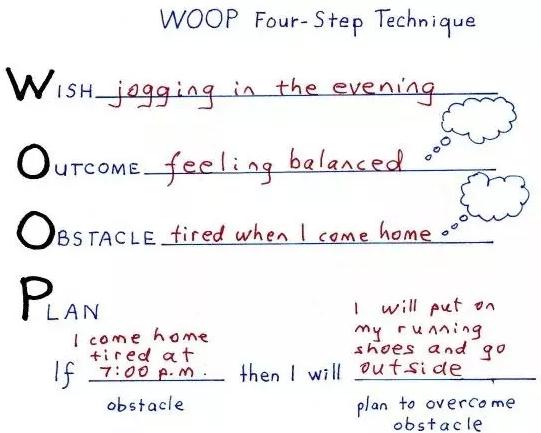 WOOP Four-Step Technique
WISH jogging in the evening
OUTCOME feeling balanced
OBSTACLE tired when I come home
PLAN
If I come home
tired at
7:00 p.m. then I will I will put on
my running
shoes and go
outside
obstacle
plan to overcome
obstacle